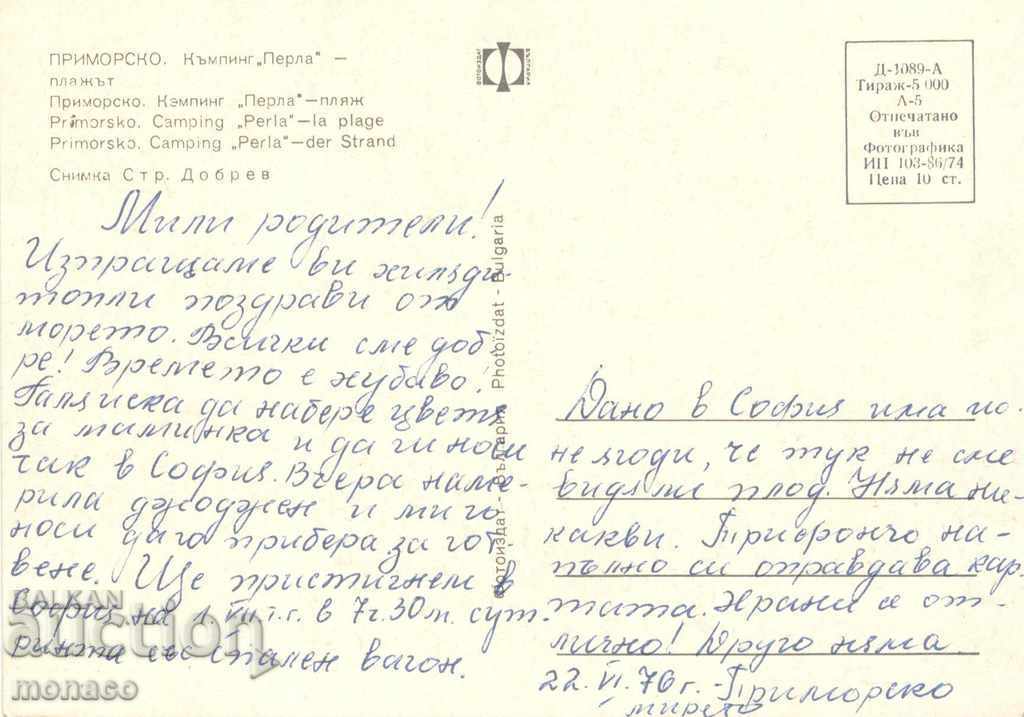 ПРИМОРСКО. Къмпинг „Перла" —
плажът
Приморско. Кэмпинг „Перла"—пляж
Primorsko. Camping „Perla"—la plage
Primorsko. Camping „Perla"—der Strand
Снимка Стр. Добрев
ФОТОИЗДАТ БЪЛГАРИЯ
Д-1089-А
Тираж-5 000
Л-5
Отпечатано
във
Фотографика
ИП 103-86/74
Цена 10 ст.
Фотоиздат - България Photoizdat - Bulgaria
Мили родители!
Изпращаме ви хиляди
топли поздрави от
морето. Всички сме доб
ре! Времето е хубаво!
Галя иска да набере цветя
за маминка и да ги носи
чак в София. Вчера наме-
рила джоджен и ми го
носи да го прибера за гот
вене. Ще пристигнем в
София на 1.VII т.г. в 7ч.30м. сут
ринта със спален вагон.
Дано в София има по-
не ягоди, че тук не сме
видяли плод. Няма ни-
какви. Трифончо на-
пълно си оправдава кар-
тата. Храни се от-
лично! Друго няма.
22.VI.76г. - Приморско
BALKAN
auction
monaco